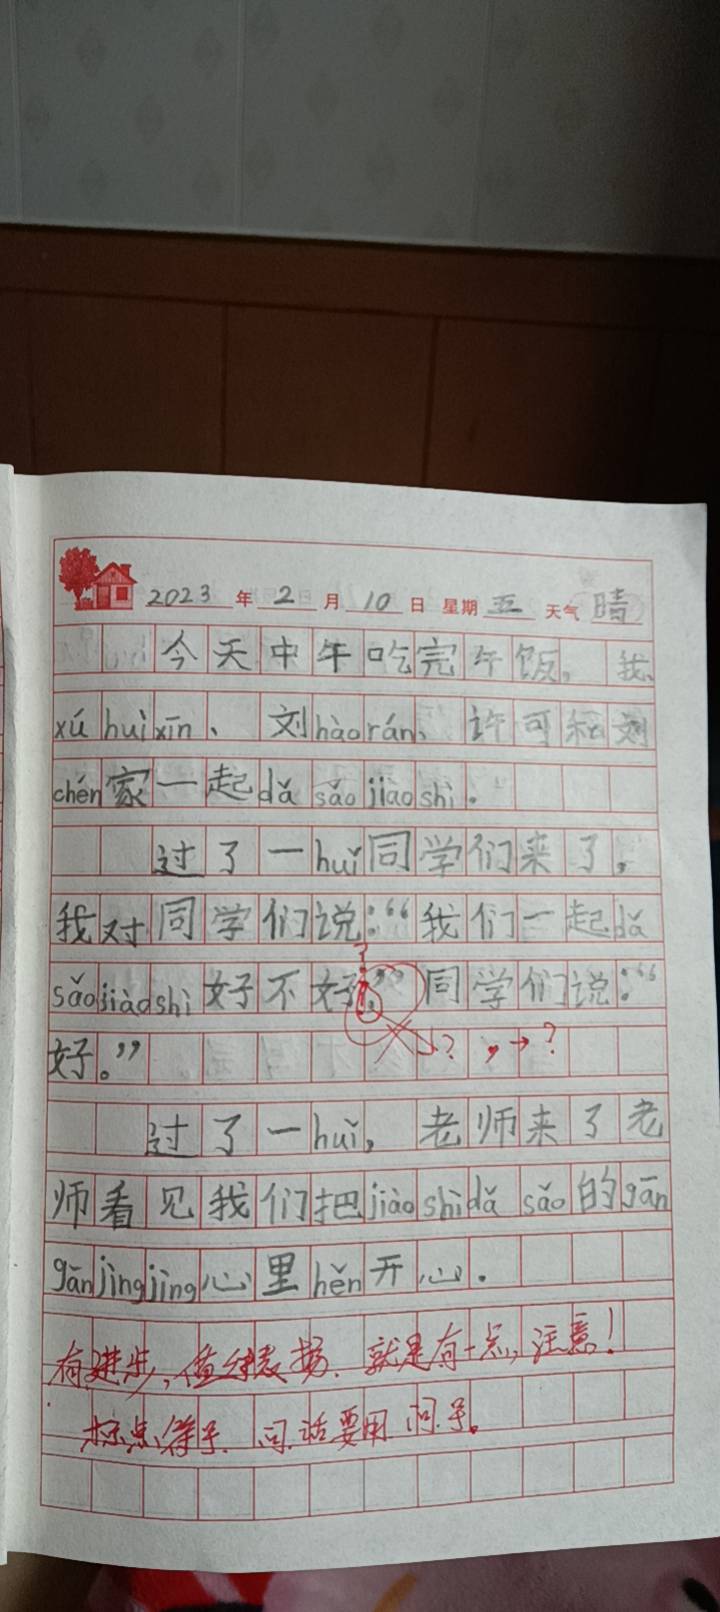 2023 年 2 月 10 日 星期 五 天气 晴
今天中午吃完午饭，我、
xú huì xīn、刘hào rán、许可和刘
chén家一起dǎ sǎo jiào shì。
过了一huǐ同学们来了，
我对同学们说：“我们一起dǎ
sǎo jiào shì 好不好，”同学们说：“
？
好。”
↓？ ，→？
过了一huǐ，老师来了老
师看见我们把jiào shì dǎ sǎo 的gān
gān jìng jìng心里hěn开心。
有进步，值得表扬．就是有一点，注意！
标点符号．问话要用问号。